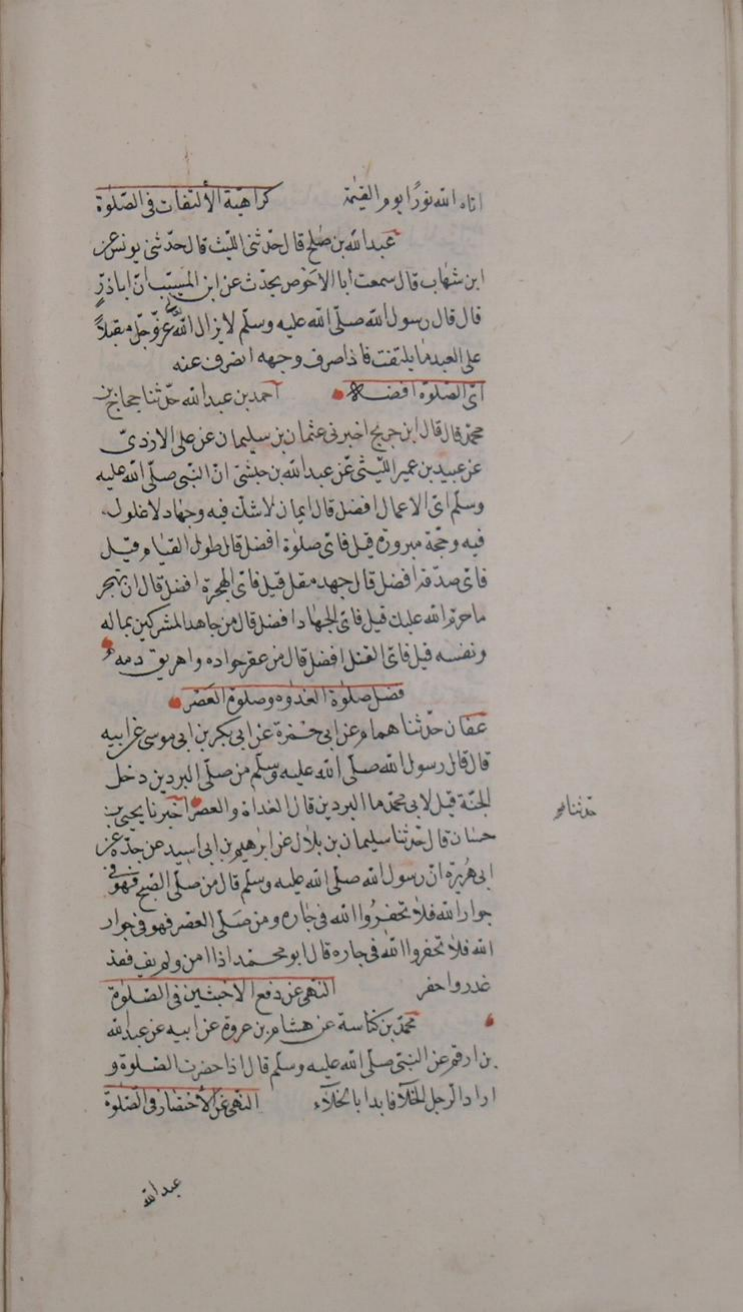 اتاه الله نورًا يوم القيمة كراهية الألتفات في الصّلوٰة
عبد الله بن صٰلح قال حدّثني الليث قال حدّثني يونس عن
ابن شهاب قال سمعت ابا الاحوص يحدّث عن ابن المسيّب انّ اباذرٍّ
قال قال رسول الله صلّى الله عليه وسلّم لا يزال الله عزّ وجلّ مقبلاً
على العبد ما يلتفت فاذا صرف وجهه انصرف عنه
اىّ الصّلوة افضل احمد بن عبد الله حدّثنا حجاج بن
محمّد قال قال ابن جريج اخبرنى عثمان بن سليمان عن على الازدىّ
عن عبيد بن عمير اللّيثى عن عبد الله بن حبشى انّ النّبى صلّى الله عليه
وسلّم اىّ الاعمال افضل قال ايمان لا شك فيه وجهاد لا غلول
فيه وحجّة مبرورة قيل فاىّ صلوٰة افضل قال طول القيام قيل
فاىّ صدقة افضل قال جهد مقل قيل فاىّ الهجرة افضل قال ان تهجر
ما حرّم الله عليك قيل فاىّ الجهاد افضل قال من جاهد المشركين بماله
ونفسه قيل فاىّ القتل افضل قال من عقر جواده واهريق دمه
فضل صلوٰة الغدوه وصلوة العصر
عفان حدّثنا همام عن ابى جمرة عن ابى بكر بن ابى موسى عن ابيه
قال قال رسول الله صلّى الله عليه وسلّم من صلّى البردين دخل
الجنّة قيل لابى محمّد ما البردين قال الغداة والعصر اخبرنا يحيى بن
حسان قال حدّثنا سليمان بن بلال عن ابرهيم بن ابى اسيد عن جدّه عن
ابى هريرة انّ رسول الله صلّى الله عليه وسلّم قال من صلّى الصّبح فهو فى
جوار الله فلا تحفروا الله فى جاره ومن صلّى العصر فهو فى جوار
الله فلا تحفروا الله فى جاره قال ابو محمّد اذا امن ولم يف فقد
غدر واحفر النّهى عن دفع الاخبثين فى الصّلوٰة
محمّد بن كناسة عن هشام بن عروة عن ابيه عن عبد الله
بن ارقم عن النبى صلّى الله عليه وسلّم قال اذا حضرت الصّلوة و
اراد الرجل الخلآء فابدا بالخلآء النّهى عن الأختصار فى الصّلوٰة
عبد الله